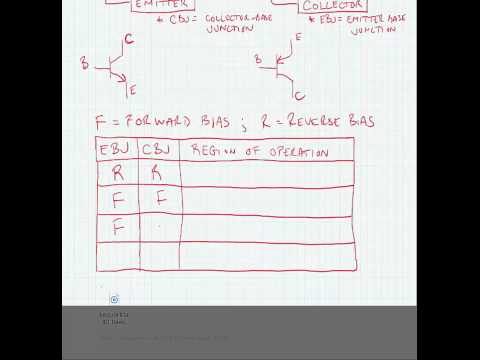 EMITTER
COLLECTOR
* CBJ = COLLECTOR-BASE JUNCTION
* EBJ = EMITTER BASE JUNCTION
C
B
E
E
B
C
F = FORWARD BIAS ; R = REVERSE BIAS
EBJ CBJ REGION OF OPERATION
R R
F F
F